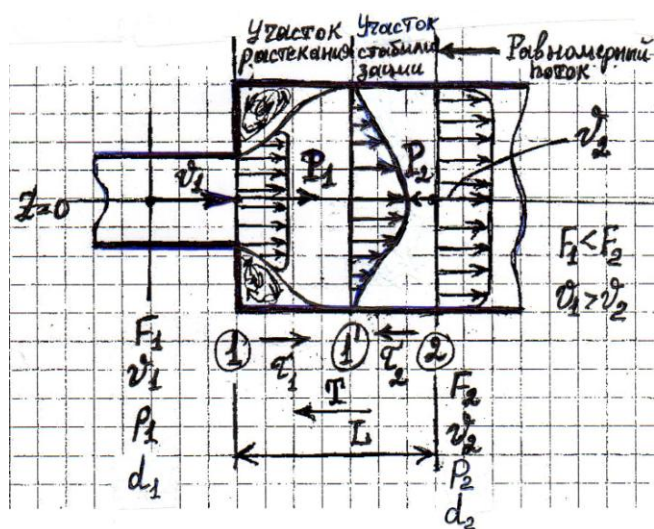 Участок
растекания
Участок
стабили
зации
Равномерный
поток
Z=0
ϑ₁
P₁
P₂
ϑ₂
F₁<F₂
ϑ₁>ϑ₂
1
1'
2
τ₁
τ₂
T
L
F₁
ϑ₁
p₁
d₁
F₂
ϑ₂
p₂
d₂